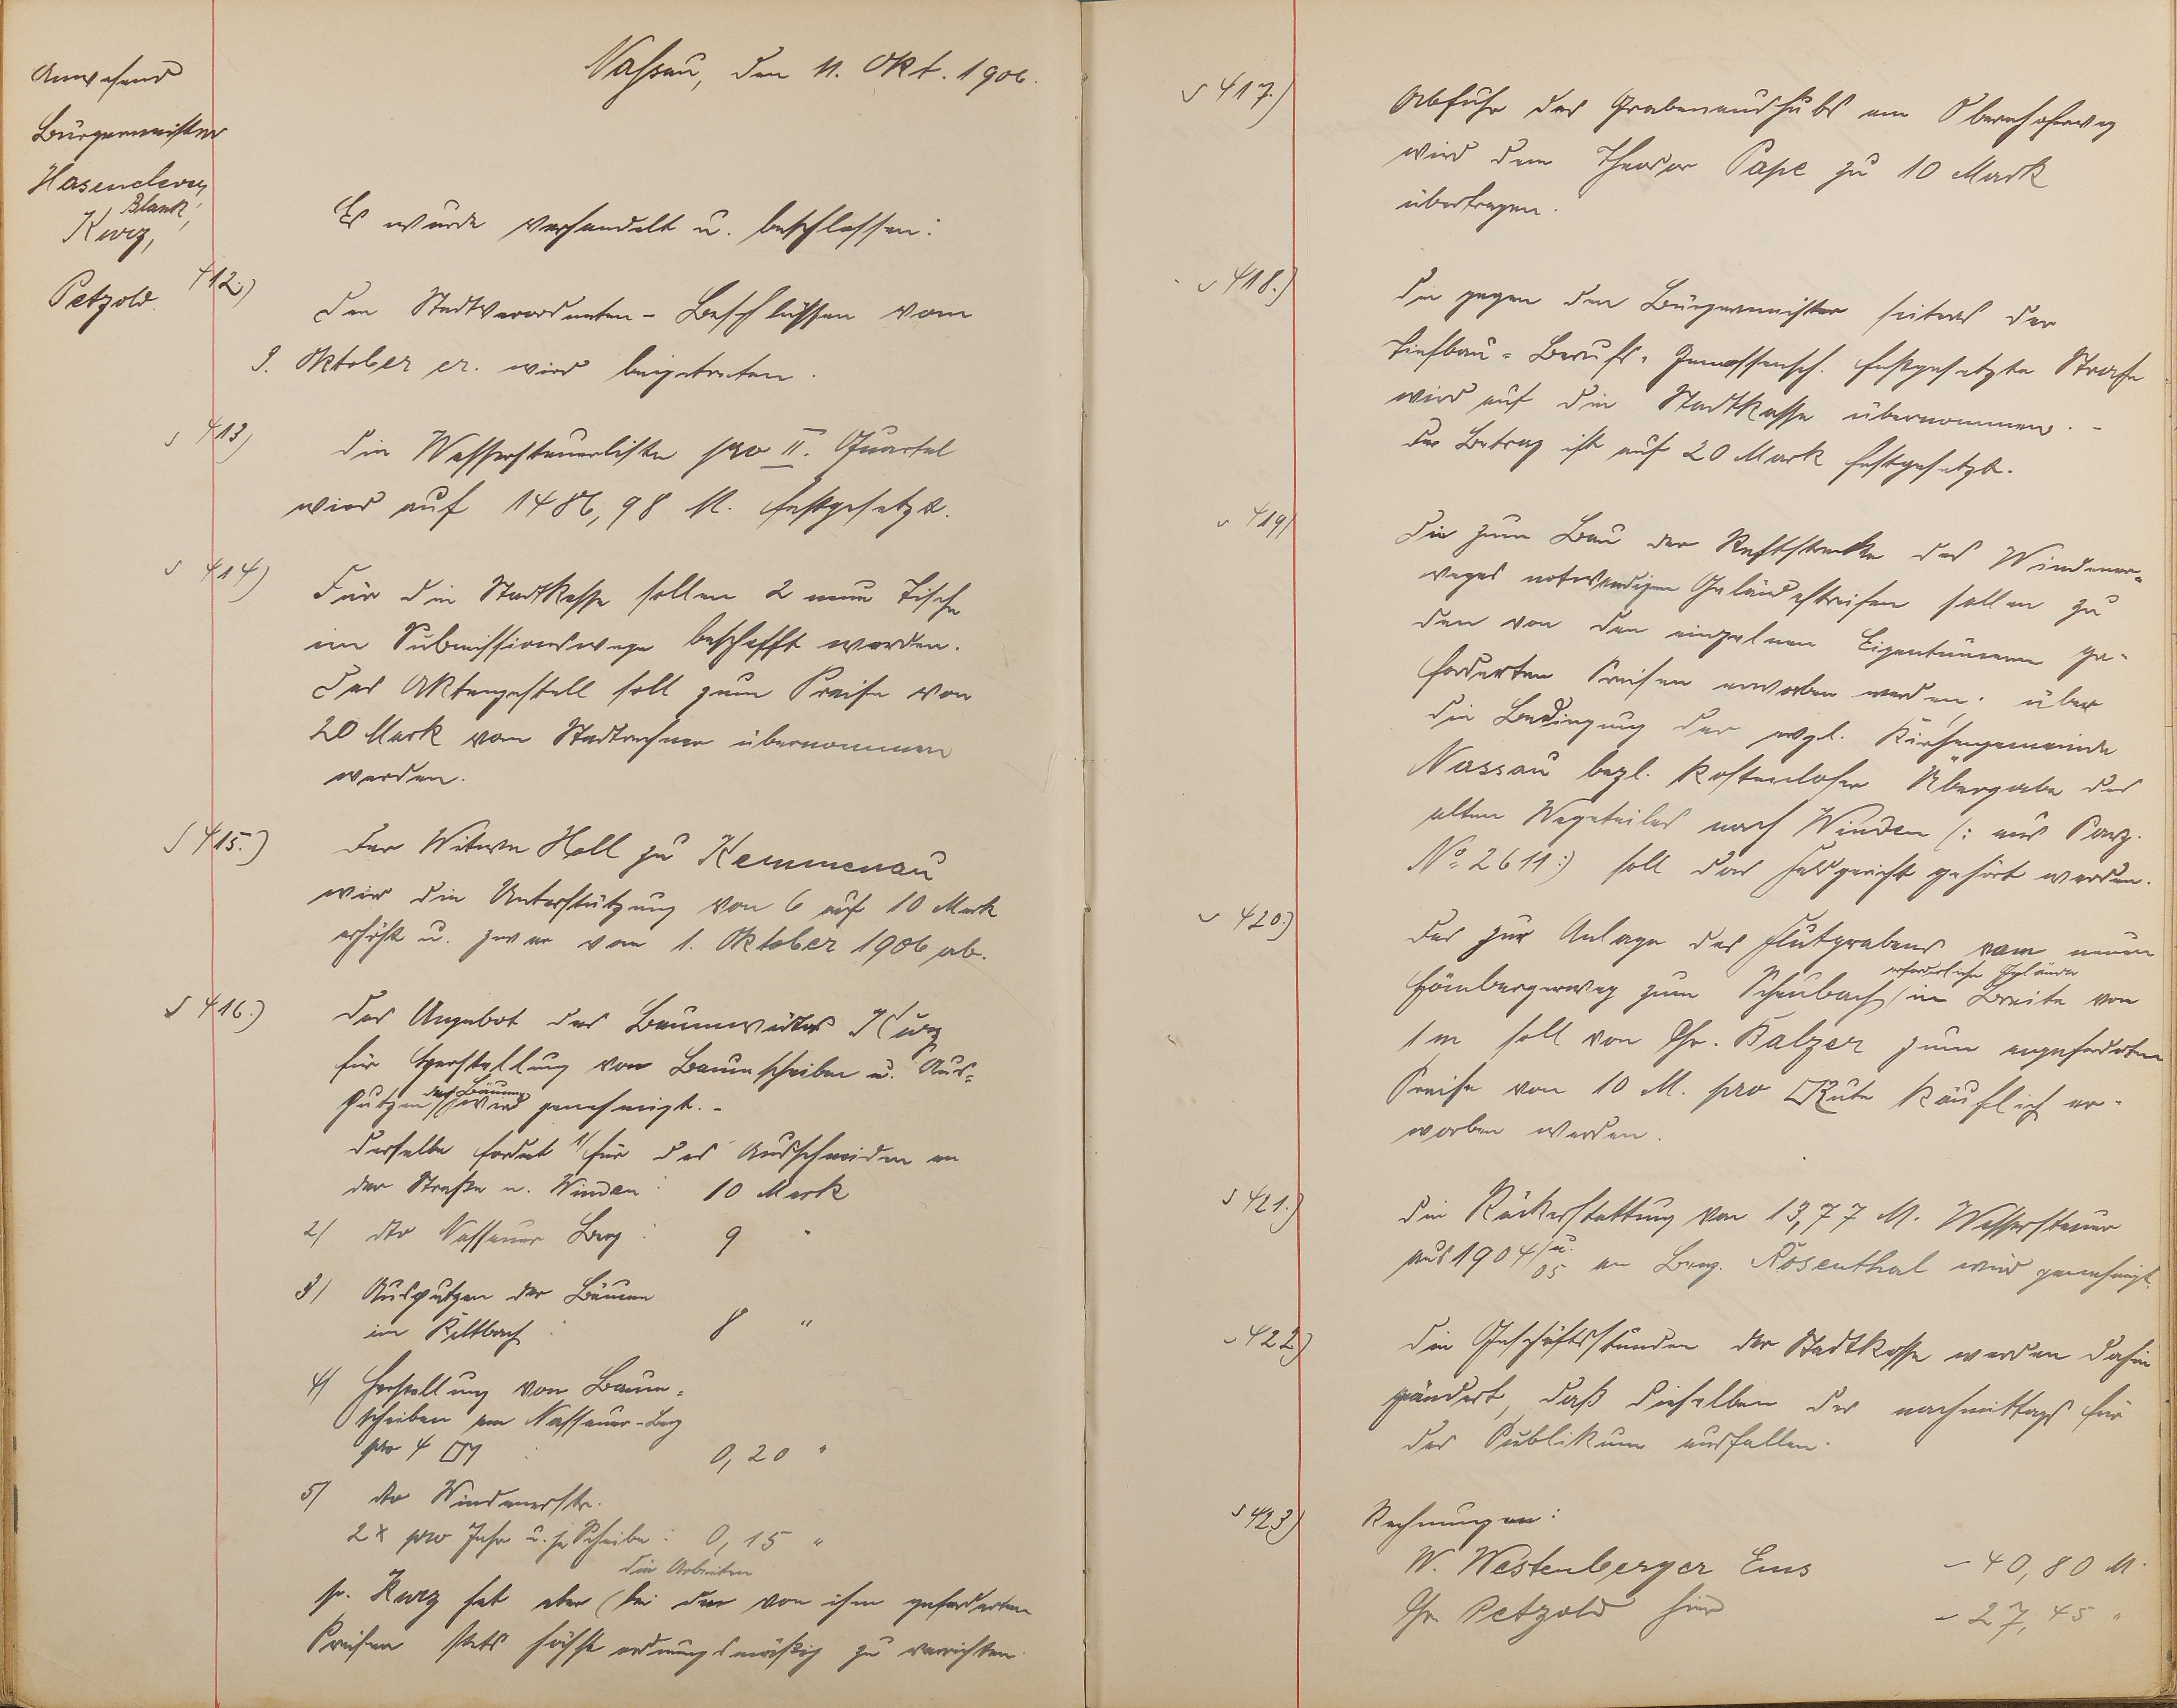 Anwesend
Bürgermeister
Hasenclever,
Blank,
Kurz,
Petzold.
Nassau, den 11. Okt. 1906.
Es wurde verhandelt u. beschlossen:
412.)
Den Stadtverordneten-Beschlüssen vom
9. Oktober cr. wird beigetreten.
413)
Die Wassersteuerliste pro II. Quartal
wird auf 1486,98 M. festgesetzt.
414)
Für die Stadtkasse sollen 2 neue Tische
im Submissionswege beschafft werden.
Das Aktengestell soll zum Preise von
20 Mark vom Stadtrechner übernommen
werden.
415.)
Der Witwe Holl zu Kemmenau
wird die Unterstützung von 6 auf 10 Mark
erhöht u. zwar vom 1. Oktober 1906 ab.
416.)
Das Angebot des Baumwärters Kurz
für Herstellung von Baumscheiben u. Aus=
putzen der Bäume wird genehmigt. -
Derselbe fordert 1/ für das Ausschneiden an
der Straße n. Winden: 10 Mark
2/ dto Nassauer Berg: 9 "
3/ Ausputzen der Bäume
im Kaltbach: 8 "
4/ Herstellung von Baum=
scheiben am Nassauer-Berg
pro 4 □M : 0,20 "
5/ dto Windenerstr.
2 x pro Jahr u. je Scheibe: 0,15 "
die Arbeiten
p. Kurz hat aber bei den von ihm geforderten
Preisen stets höchst ordnungsmäßig zu verrichten.
417.)
Abfuhr des Grabenaushubs am Obernhoferweg
wird dem Theodor Pape zu 10 Mark
übertragen.
418.)
Die gegen den Bürgermeister seitens der
Tiefbau-Berufs-Genossensch. festgesetzte Strafe
wird auf die Stadtkasse übernommen. -
Der Betrag ist auf 20 Mark festgesetzt.
419)
Die zum Bau der Reststrecke des Windener=
weges notwendigen Geländestreifen sollen zu
den von den einzelnen Eigentümern ge-
forderten Preisen erworben werden. über
die Bedingung der evgl. Kirchengemeinde
Nassau bezl. kostenloser Übergabe des
alten Wegeteiles nach Winden (: aus Parz.
No. 2611 :) soll das Feldgericht gehört werden.
420.)
Das zur Anlage des Flutgrabens vom neuen
Hömbergerweg zum Scheubach erforderliche Gelände in Breite von
1 m soll von Chr. Balzer zum angeforderten
Preise von 10 M. pro □Rute käuflich er-
worben werden.
421.)
Die Rückerstattung von 13,77 M. Wassersteuer
aus 1904 u. 05 an Benj. Rosenthal wird genehmigt.
422)
Die Geschäftsstunden der Stadtkasse werden dahin
geändert, daß dieselben des nachmittags für
das Publikum ausfallen.
423)
Rechnungen:
W. Westenberger Ems - 40,80 M.
Chr. Petzold hier - 27,45 "